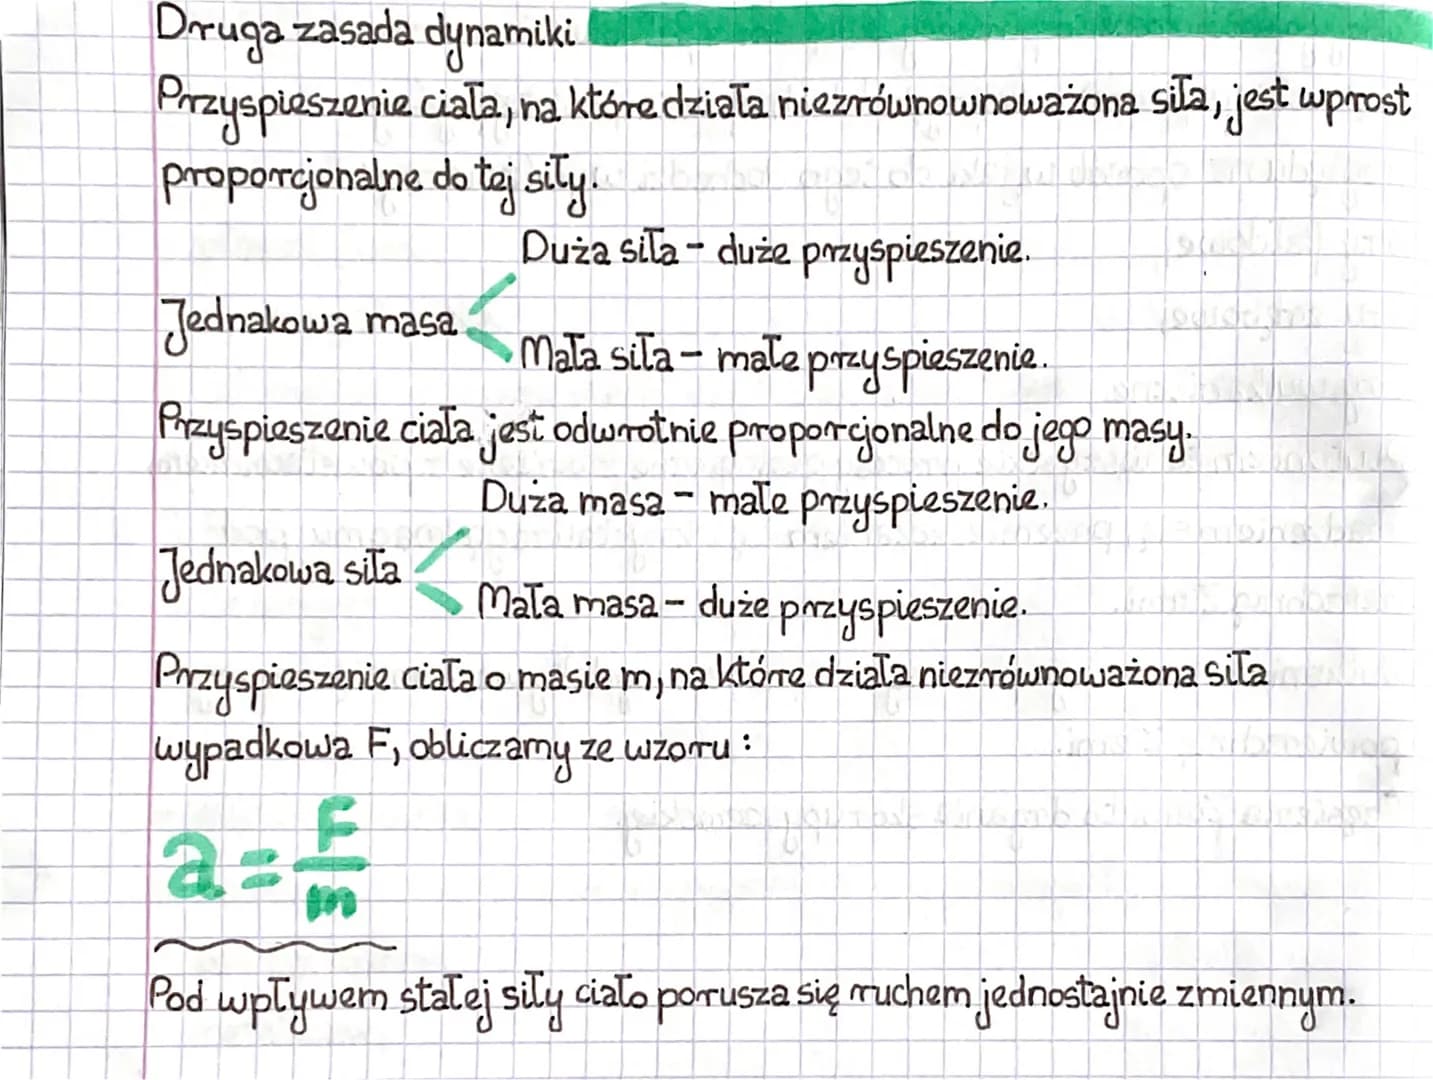 Druga zasada dynamiki
Przyspieszenie ciała, na które działa niezrównownoważona siła, jest wprost
proporcjonalne do tej siły.
Duża siła - duże przyspieszenie.
Jednakowa masa
Mała siła - małe przyspieszenie.
Przyspieszenie ciała jest odwrotnie proporcjonalne do jego masy.
Duża masa - małe przyspieszenie.
Jednakowa siła
Mała masa - duże przyspieszenie.
Przyspieszenie ciała o masie m, na które działa niezrównoważona siła
wypadkowa F, obliczamy ze wzoru :
a = F/m
Pod wpływem stałej siły ciało porusza się ruchem jednostajnie zmiennym.